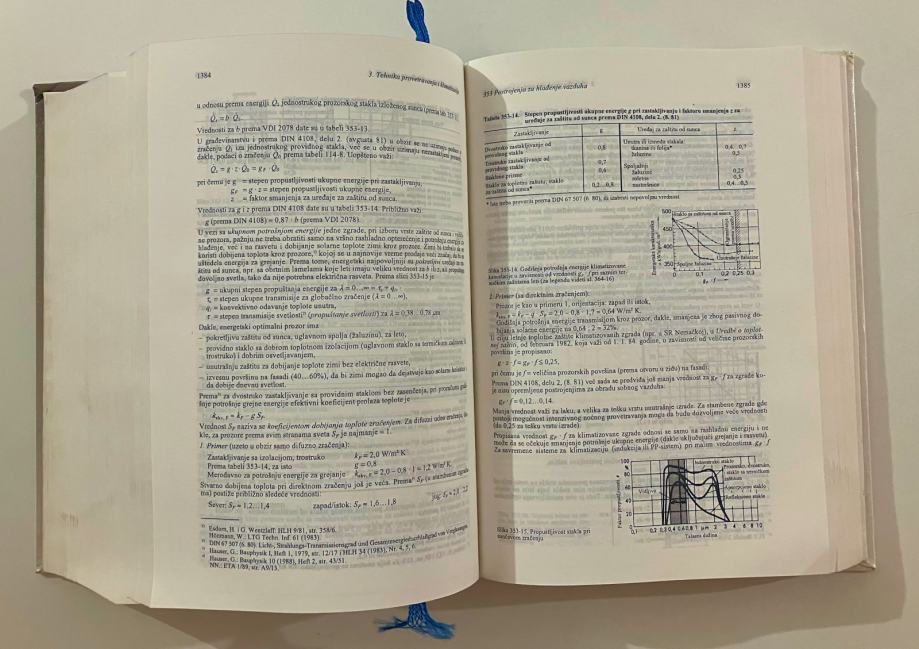 1384
3. Tehnika provetravanja i klimatizacije
u odnosu prema energiji Q̇ₛ jednostrukog prozorskog stakla izloženog suncu (prema
Q̇ₛ = b Q̇ₛ.
Vrednosti za b prema VDI 2078 date su u tabeli 353-13.
U građevinarstvu i prema DIN 4108, delu 2. (avgusta 81) u obzir se ne uzimaju podaci o
zračenju Q̇ₛ iza jednostrukog providnog stakla, već se u obzir uzimaju
dakle, podaci o zračenju Q̇ₒ prema tabeli 114-8. Uopšteno važi:
Q̇ₛ = g · z · Q̇ₒ = g_F · Q̇ₒ
pri čemu je g = stepen propustljivosti ukupne energije pri zastakljivanju,
g_F = g · z = stepen propustljivosti ukupne energije,
z = faktor smanjenja za uređaje za zaštitu od sunca.
Vrednosti za g i z prema DIN 4108 date su u tabeli 353-14. Približno važi:
g (prema DIN 4108) = 0,87 · b (prema VDI 2078).
U vezi sa ukupnom potrošnjom energije jedne zgrade, pri izboru vrste zaštite od sunca i
ne prozora, pažnju ne treba obratiti samo na vršno rashladno opterećenje i potrošnju energije za
hlađenje, već i na rasvetu i dobijanje solarne toplote zimi kroz prozore. Zimi bi trebalo da se
koristi dobijena toplota kroz prozore, kojoj se u najnovije vreme predaje veći značaj, da bi se
uštedela energija za grejanje. Prema tome, energetski najpovoljniji su pokretljivi uređaji za za-
štitu od sunca, npr. sa obrtnim lamelama koje leti imaju veliku vrednost za b ili z, ali propuštaju
dovoljno svetla, tako da nije potrebna električna rasveta. Prema slici 353-15 je
g = ukupni stepen propuštanja energije za λ = 0...∞ = τₑ + qᵢ,
τₑ = stepen ukupne transmisije za globačino zračenje (λ = 0...∞),
qᵢ = konvektivno odavanje toplote unutra,
τ = stepen transmisije svetlosti (propuštanje svetlosti) za λ = 0,38...0,78 μm
Dakle, energetski optimalni prozor ima
– pokretljivu zaštitu od sunca, uglavnom spolja (žaluzinu), za leto,
– providno staklo sa dobrom toplotnom izolacijom (uglavnom staklo sa termičkom zaštitom,
trostruko) i dobrim osvetljavanjem,
– unutrašnju zaštitu za dobijanje toplote zimi bez električne rasvete,
– izvesnu površinu na fasadi (40...60%), da bi zimi mogao da dejstvuje kao solarni kolektor i
da dobije dnevnu svetlost.
Prema za dvostruko zastakljivanje sa providnim staklom bez zasenčenja, pri proračunu go-
šnje potrošnje grejne energije efektivni koeficijent prolaza toplote je
k_{ekv, F} = k_F – g S_F.
Vrednost S_F naziva se koeficijentom dobijanja toplote zračenjem. Za difuzni udeo zračenja,
kle, za prozore prema svim stranama sveta S_F je najmanje = 1.
1. Primer (uzeto u obzir samo difuzno zračenje):
Zastakljivanje sa izolacijom, trostruko k_F = 2,0 W/m² K
Prema tabeli 353-14, za isto g = 0,8
Merodavno za potrošnju energije za grejanje k_{ekv, F} = 2,0 – 0,8 · 1 = 1,2 W/m² K.
Stvarno dobijena toplota pri direktnom zračenju još je veća. Prema S_F (u stambenim zgrada-
ma) postiže približno sledeće vrednosti:
Sever: S_F = 1,2...1,4 zapad/istok: S_F = 1,6...1,8 jug: S_F = 2,0...2,2
Esdorn, H. i G. Wentzlaff: HLH 9/81, str. 358/6.
Hönmann, W.: LTG Techn. Inf. 61 (1983).
DIN 67 507 (6. 80). Licht-, Strahlungs-Transmissionsgrad und Gesamtenergiedurchlaßgrad von Verglasungen.
Hauser, G.: Bauphysik I, Heft 1, 1979, str. 12/17 i HLH 34 (1983), Nr. 4, 5, 6.
Hauser, G.: Bauphysik 10 (1988), Heft 2, str. 43/51.
NN.: ETA 1/89, str. A9/13.
353 Postrojenja za hlađenje vazduha
1385
Tabela 353-14. Stepen propustljivosti ukupne energije g pri zastakljivanju i faktoru smanjenja z za
uređaje za zaštitu od sunca prema DIN 4108, delu 2. (8. 81)
Zastakljivanje g Uređaj za zaštitu od sunca z
Dvostruko zastakljivanje od
providnog stakla 0,8
Trostruko zastakljivanje od
providnog stakla 0,7
Staklene prizme 0,6
Staklo za toplotnu zaštitu, staklo
za zaštitu od sunca* 0,2...0,8
Unutra ili između stakala:
tkanina ili folija* 0,4...0,7
žaluzine 0,5
Spoljašnji
žaluzine 0,25
roletne 0,3
nastrešnice 0,4...0,5
* Isto treba proveriti prema DIN 67 507 (6. 80), ili izabrati nepovoljnu vrednost
500
450
400
350
Staklo za zaštitu od sunca
Unutrašnje žaluzine
Spoljne žaluzine
0 0,1 0,2 0,25 0,3
g_F · f
Slika 353-14. Godišnja potrošnja energije klimatizovane
kancelarije u zavisnosti od vrednosti g_F · f pri raznim teh-
ničkim zaštitama leti (za legendu videti sl. 364-16)
2. Primer (sa direktnim zračenjem):
Prozor je kao u primeru 1, orijentacija: zapad ili istok,
k_{ekv, F} = k_F – g · S_F = 2,0 – 0,8 · 1,7 = 0,64 W/m² K.
Godišnja potrošnja energije transmisijom kroz prozor, dakle, smanjena je zbog pasivnog do-
bijanja solarne energije na 0,64 : 2 = 32%.
U cilju letnje toplotne zaštite klimatizovanih zgrada (npr. u SR Nemačkoj), u Uredbi o toplot-
noj zaštiti, od februara 1982, koja važi od 1. 1. 84. godine, u zavisnosti od veličine prozorskih
površina je propisano:
g · z · f = g_F · f ≤ 0,25,
pri čemu je f = veličina prozorskih površina (prema otvoru u zidu) na fasadi.
Prema DIN 4108, delu 2, (8. 81) već sada se predviđa još manja vrednost za g_F · f za zgrade ko-
je nisu opremljene postrojenjima za obradu sobnog vazduha:
g_F · f = 0,12...0,14.
Manja vrednost važi za laku, a velika za tešku vrstu unutrašnje izrade. Za stambene zgrade gde
postoji mogućnost intenzivnog noćnog provetravanja mogu da budu dozvoljene veće vrednosti
(do 0,25 za tešku vrstu izrade).
Propisana vrednost g_F · f za klimatizovane zgrade odnosi se samo na rashladnu energiju i ne
može da se očekuje smanjenje potrošnje ukupne energije (dakle uključujući grejanje i rasvetu).
Za savremene sisteme za klimatizaciju (indukcija ili PP-sistem) pri malim vrednostima g_F · f
Faktor propustljivosti
100
80
60
40
20
0
Vidljivo
Jednostruko staklo
Dvostruko, trostruko,
staklo sa termičkom
zaštitom
Apsorpciono staklo
Refleksiono staklo
0,1 0,2 0,3 0,4 0,6 0,8 1 μm 2 3 4 6 8 10
Talasna dužina
Slika 353-15. Propustljivost stakla pri
sunčevom zračenju